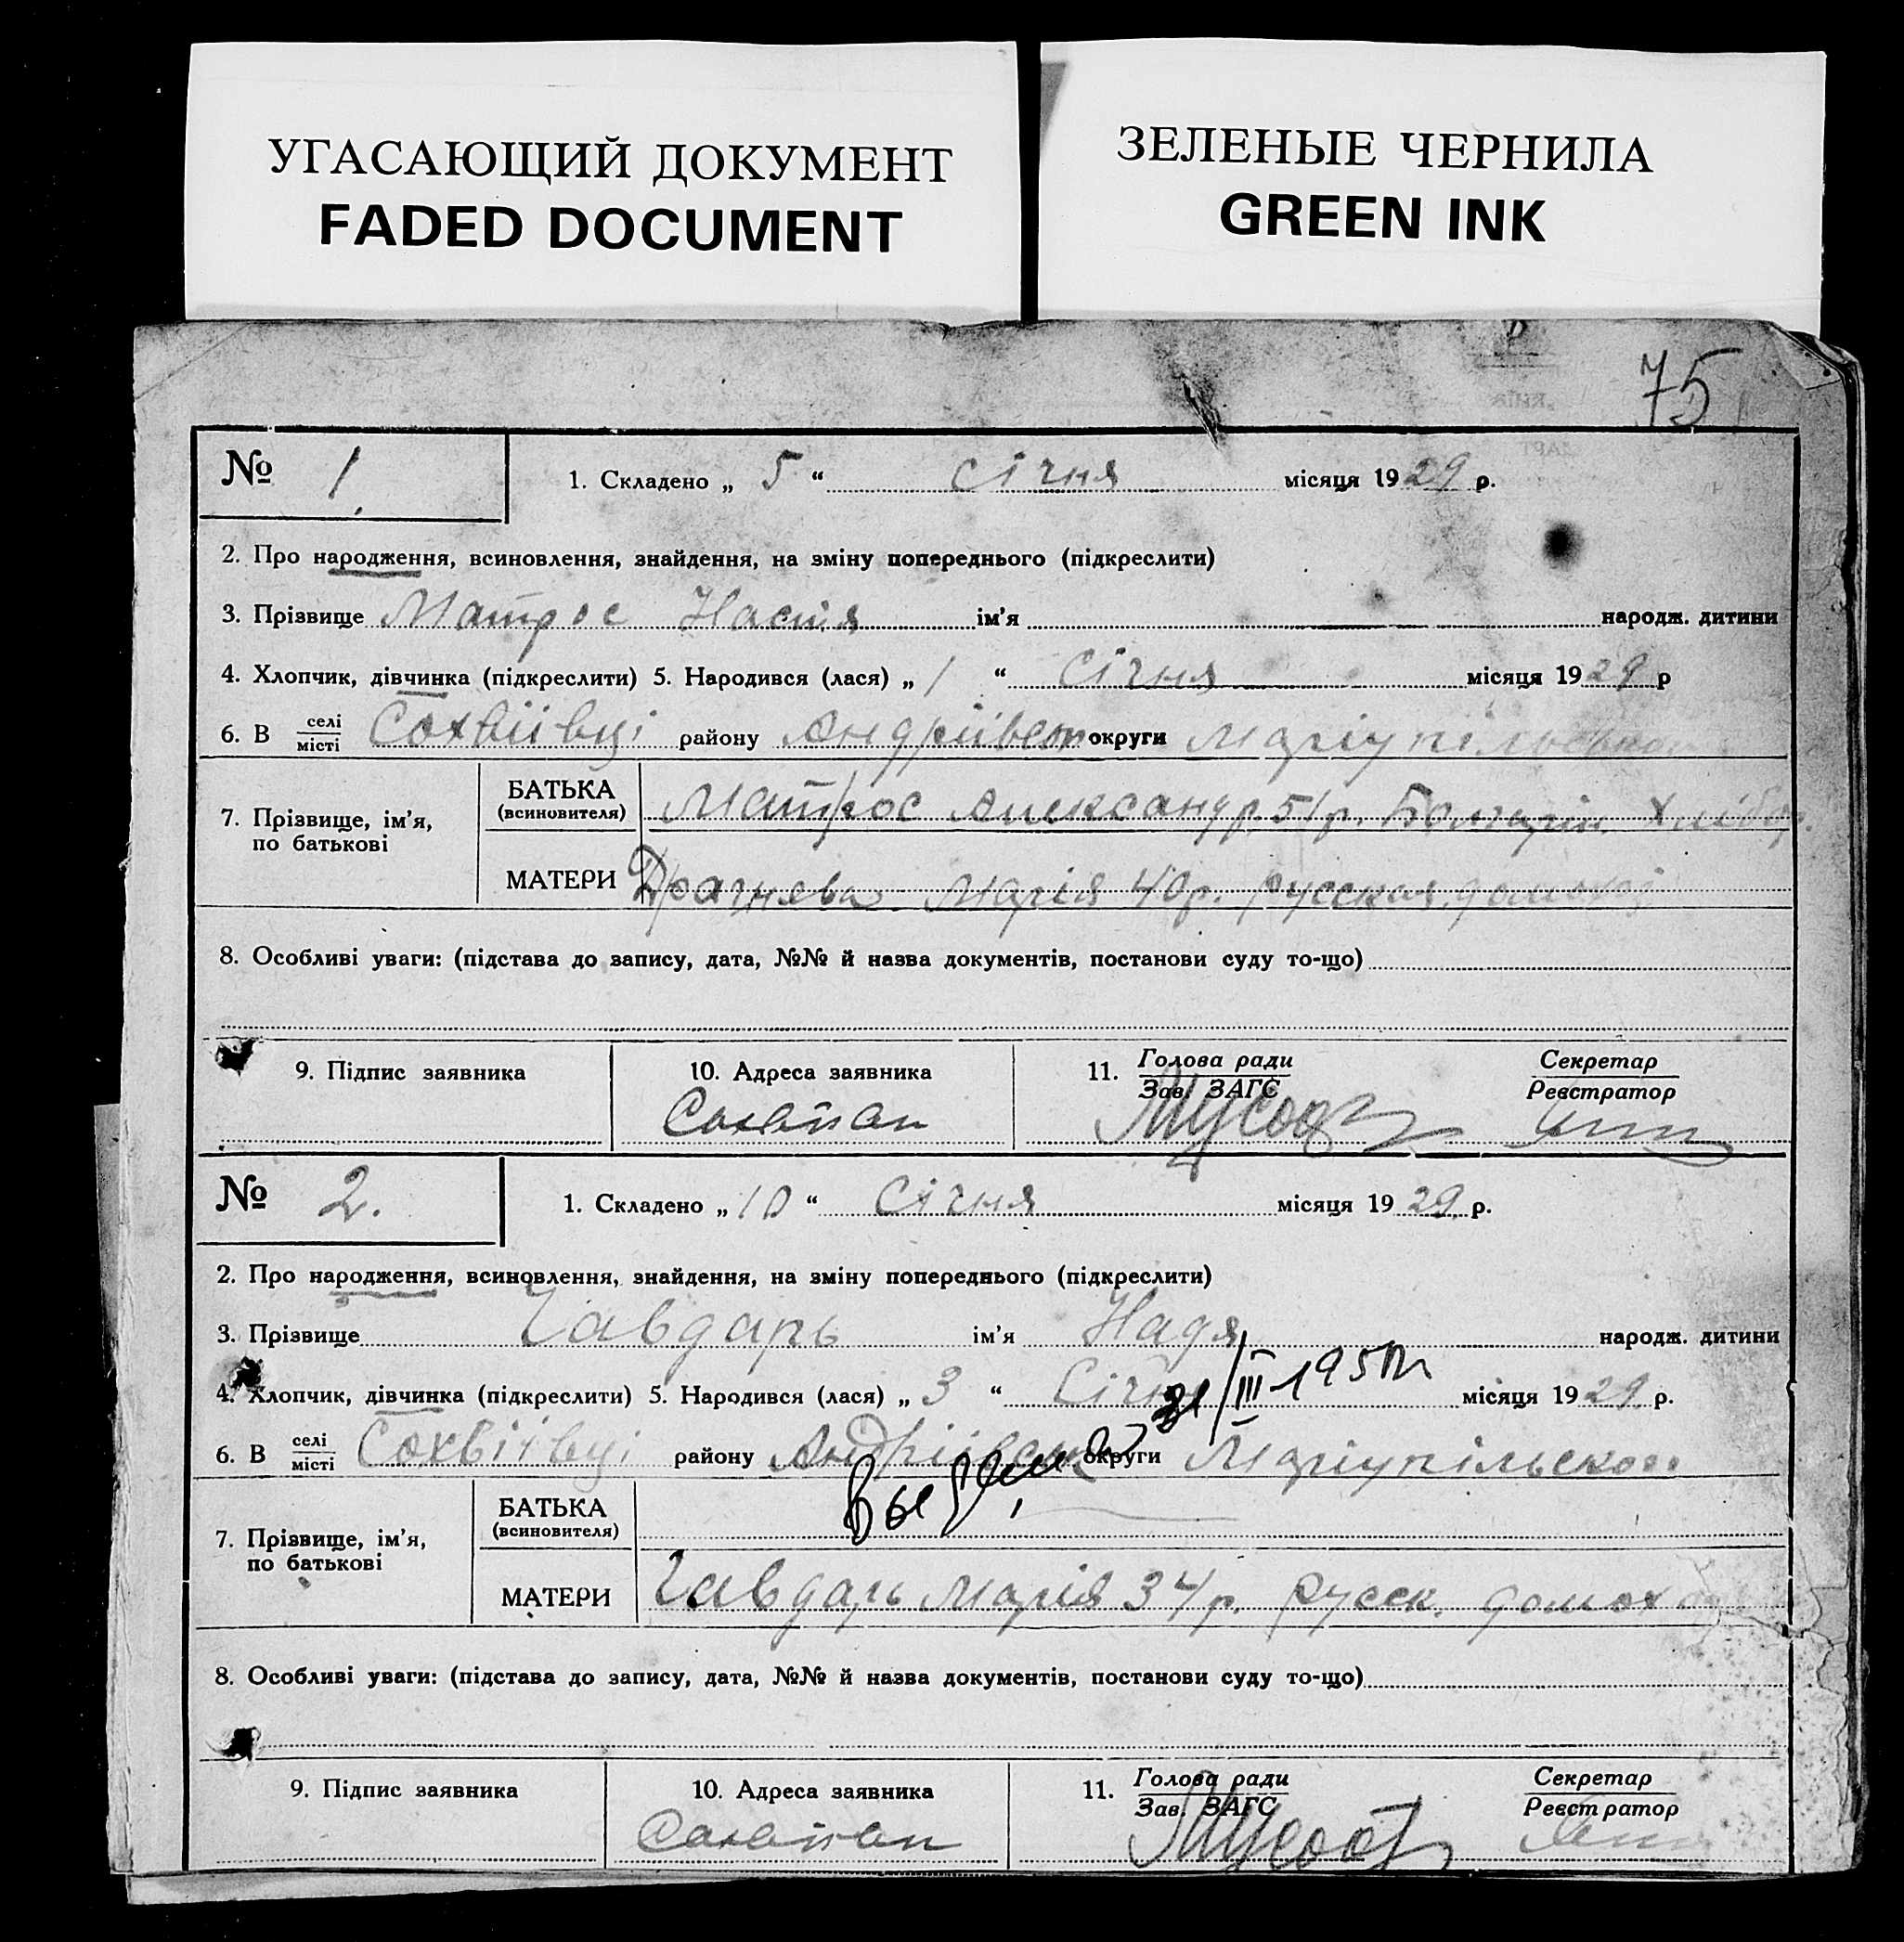 УГАСАЮЩИЙ ДОКУМЕНТ
FADED DOCUMENT
ЗЕЛЕНЫЕ ЧЕРНИЛА
GREEN INK
75
№ 1. 1. Складено „ 5 “ січня місяця 1929 р.
2. Про народження, всиновлення, знайдення, на зміну попереднього (підкреслити)
3. Прізвище Матрос Настя ім’я народж. дитини
4. Хлопчик, дівчинка (підкреслити) 5. Народився (лася) „ 1 “ Січня місяця 1929 р
6. В селі/місті Сохвіівці району округи
7. Прізвище, ім’я, по батькові
БАТЬКА (всиновителя) Матрос Александр 51 р.
МАТЕРИ Драгнева Марія 40 р. русская
8. Особливі уваги: (підстава до запису, дата, №№ й назва документів, постанови суду то-що)
9. Підпис заявника 10. Адреса заявника 11. Голова ради/Зав. ЗАГС Секретар/Реєстратор
№ 2. 1. Складено „ 10 “ Січня місяця 1929. р.
2. Про народження, всиновлення, знайдення, на зміну попереднього (підкреслити)
3. Прізвище Чавдарь ім’я Надя народж. дитини
4. Хлопчик, дівчинка (підкреслити) 5. Народився (лася) „ 3 “ Січня місяця 1929. р.
6. В селі/місті Сохвіівці району Андріівськ округи Маріупільскои
7. Прізвище, ім’я, по батькові
БАТЬКА (всиновителя)
МАТЕРИ Чавдарь Марія 34 р. русск.
8. Особливі уваги: (підстава до запису, дата, №№ й назва документів, постанови суду то-що)
9. Підпис заявника 10. Адреса заявника 11. Голова ради/Зав. ЗАГС Секретар/Реєстратор